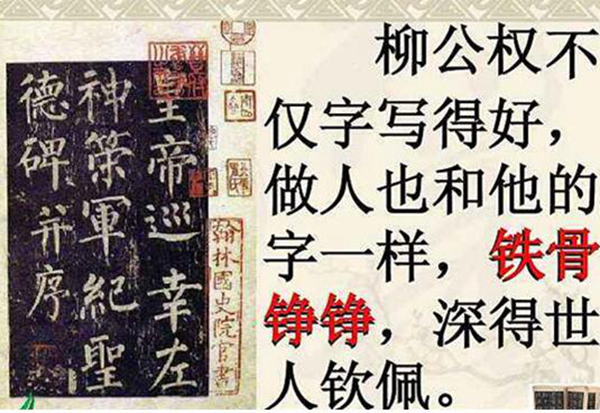 柳公权不
仅字写得好，
做人也和他的
字一样，铁骨
铮铮，深得世
人钦佩。
皇帝巡幸左
神策軍紀聖
德碑并序
翰林國史院官書